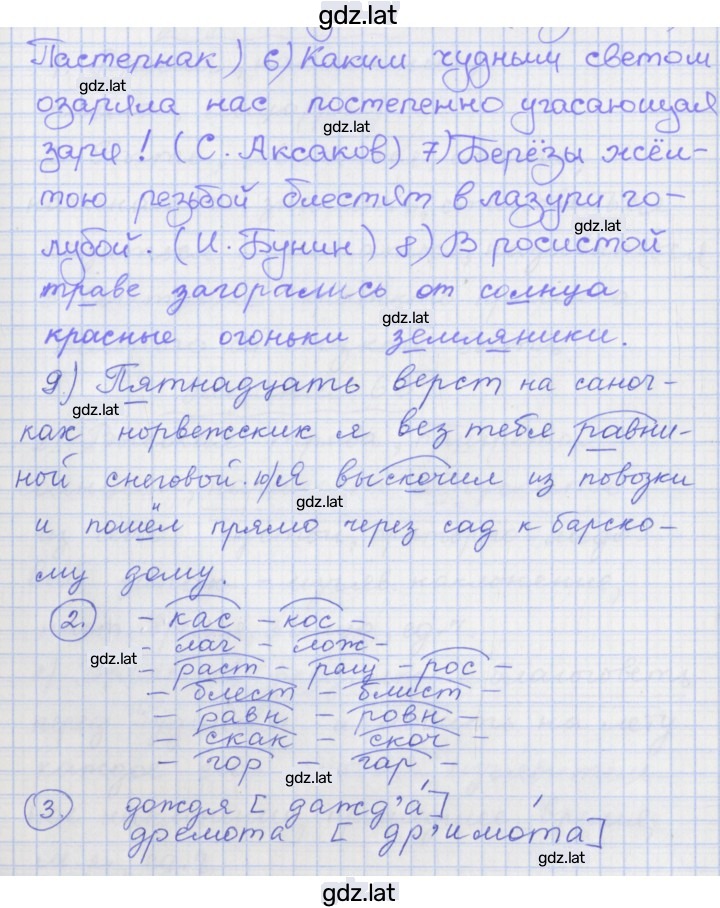 gdz.lat
Пастернак) 6) Каким чудным светом
gdz.lat
озаряла нас постепенно угасающая
gdz.lat
заря! (С. Аксаков) 7) Берёзы жёл-
тою резьбой блестят в лазури го-
gdz.lat
лубой. (И. Бунин) 8) В росистой
траве загорались от солнца
gdz.lat
красные огоньки земляники.
9) Пятнадцать верст на саноч-
gdz.lat
ках норвежских я вез тебя равни-
ной снеговой. 10) Я выскочил из повозки
gdz.lat
и пошёл прямо через сад к барско-
му дому.
2. - кас - кос -
- лаг - лож -
gdz.lat
- раст - ращ - рос -
- блест - блист -
- равн - ровн -
- скак - скоч -
- гор - гар -
gdz.lat
3. дождя [дажд'а́]
дремота [др'имо́та]
gdz.lat
gdz.lat